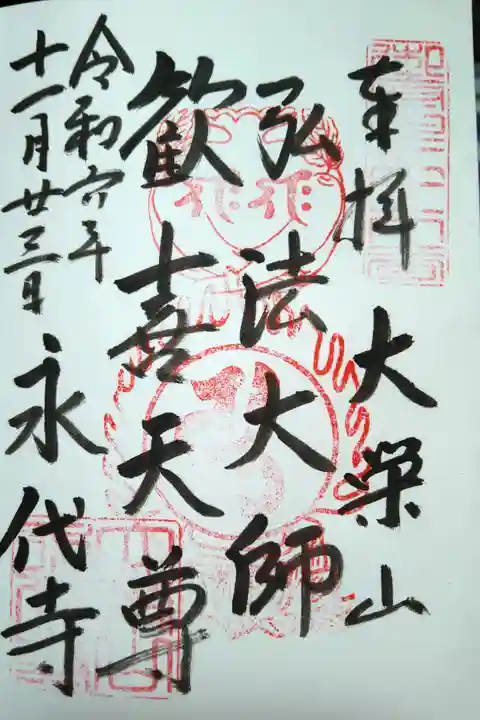 奉拝
大栄山
弘法大師
歓喜天尊
令和六年
十一月廿三日
永代寺